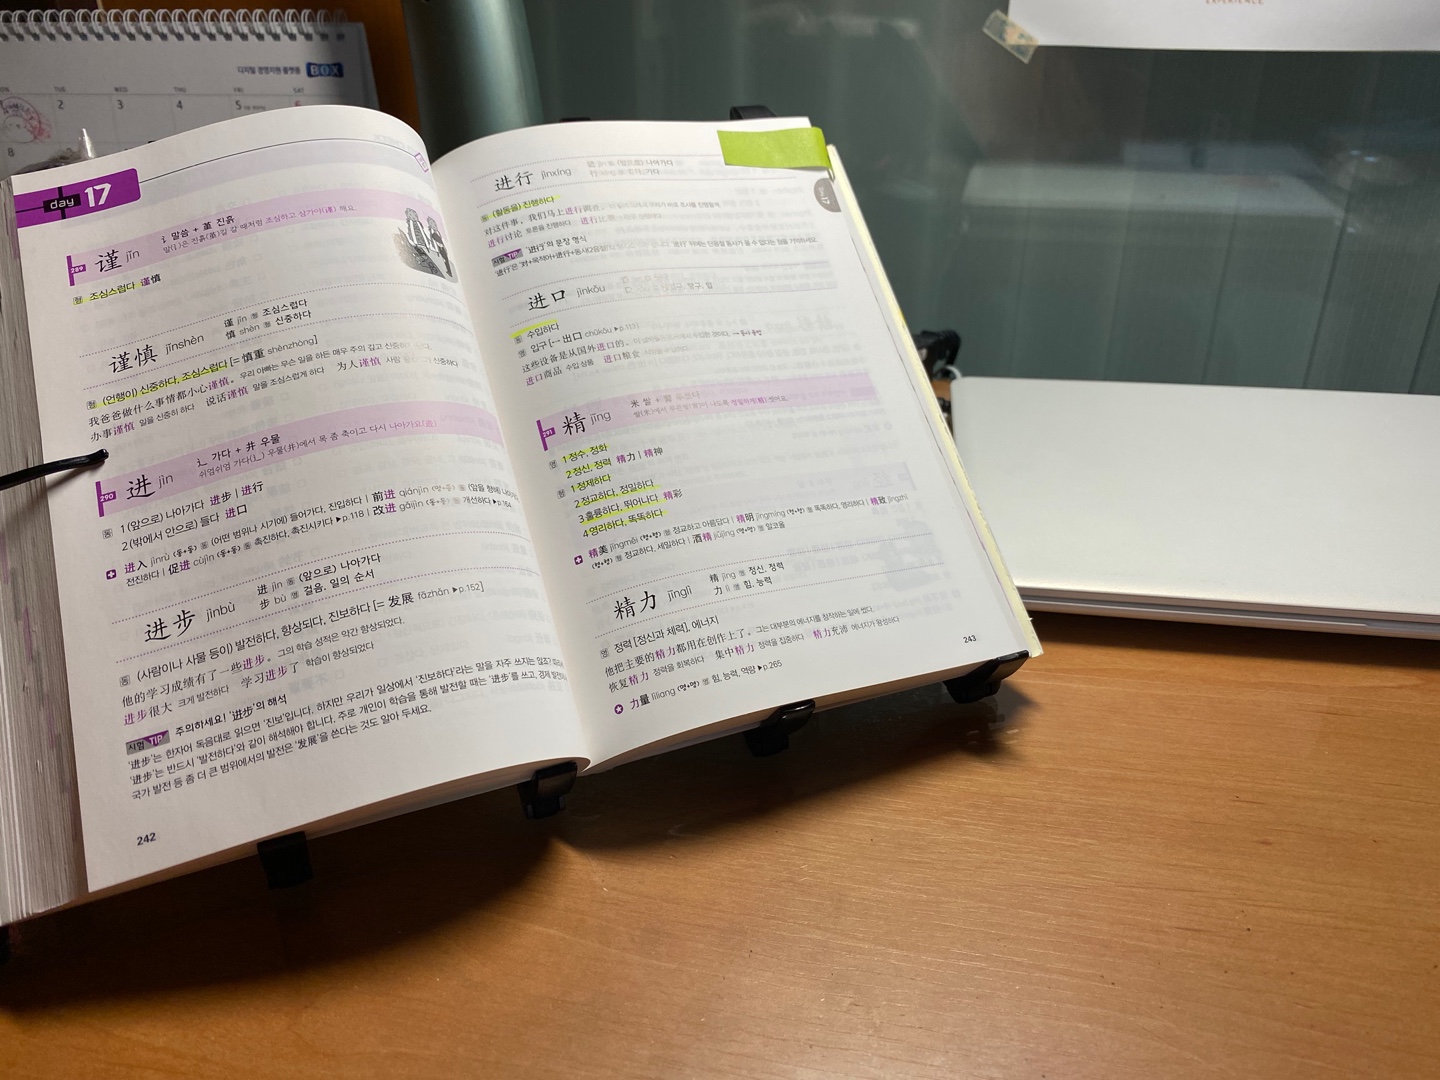 디지털 경영지원 플랫폼 BOX
TUE WED THU FRI SAT
2 3 4 5 6
8
EXPERIENCE
day 17
289 谨 jǐn
讠 말씀 + 堇 진흙
형 조심스럽다 谨慎
谨慎 jǐnshèn
谨 jǐn 형 조심스럽다
慎 shèn 형 신중하다
형 (언행이) 신중하다, 조심스럽다 [= 慎重 shènzhòng]
我爸爸做什么事情都小心谨慎。 우리 아빠는 무슨 일을 하든 매우 주의 깊고 신중하시다.
办事谨慎 일을 신중히 하다 说话谨慎 말을 조심스럽게 하다 为人谨慎 사람
290 进 jìn
辶 가다 + 井 우물
쉬엄쉬엄 가다(辶) 우물(井)에서 목 좀 축이고 다시 나아가요(进)
동 1 (앞으로) 나아가다 进步 | 进行
2 (밖에서 안으로) 들다 进口
进入 jìnrù (동+동) 동 (어떤 범위나 시기에) 들어가다, 진입하다 | 前进 qiánjìn (명+동) 동 (앞을 향해)
전진하다 | 促进 cùjìn (동+동) 동 촉진하다, 촉진시키다 ▶p.118 | 改进 gǎijìn (동+동) 동 개선하다 ▶p.164
进步 jìnbù
进 jìn 동 (앞으로) 나아가다
步 bù 명 걸음, 일의 순서
동 (사람이나 사물 등이) 발전하다, 향상되다, 진보하다 [= 发展 fāzhǎn ▶p.152]
他的学习成绩有了一些进步。 그의 학습 성적은 약간 향상되었다.
进步很大 크게 발전하다 学习进步了 학습이 향상되었다
시험 TIP 주의하세요! '进步'의 해석
'进步'는 한자어 독음대로 읽으면 '진보'입니다. 하지만 우리가 일상에서 '진보하다'라는 말을 자주 쓰지는 않죠?
'进步'는 반드시 '발전하다'와 같이 해석해야 합니다. 주로 개인이 학습을 통해 발전할 때는 '进步'를 쓰고, 경제
국가 발전 등 좀 더 큰 범위에서의 발전은 '发展'을 쓴다는 것도 알아 두세요.
242
进行 jìnxíng
동 (활동을) 진행하다
对这件事，我们马上进行调查。
进行讨论 토론을 진행하다 进行
시험 TIP '进行'의 문장 형식
进口 jìnkǒu
동 수입하다
명 입구 [↔ 出口 chūkǒu ▶p.111]
这些设备是从国外进口的。
进口商品 수입 상품 进口粮食
291 精 jīng
명 1 정수, 정화
2 정신, 정력 精力 | 精神
형 1 정제하다
2 정교하다, 정밀하다
3 훌륭하다, 뛰어나다 精彩
4 영리하다, 똑똑하다
精美 jīngměi (형+형) 형 정교하고 아름답다 | 精明 jīngmíng (형+형) 형 똑똑하다, 영리하다 | 精致 jīngzhì
(형+형) 형 정교하다, 세밀하다 | 酒精 jiǔjīng (명+명) 명 알코올
精力 jīnglì
精 jīng 명 정신, 정력
力 lì 명 힘, 능력
명 정력 [정신과 체력], 에너지
他把主要的精力都用在创作上了。 그는 대부분의 에너지를 창작하는 일에 썼다.
恢复精力 정력을 회복하다 集中精力 정력을 집중하다 精力充沛 에너지가 왕성하다
力量 lìliang (명+명) 명 힘, 능력, 역량 ▶p.265
243